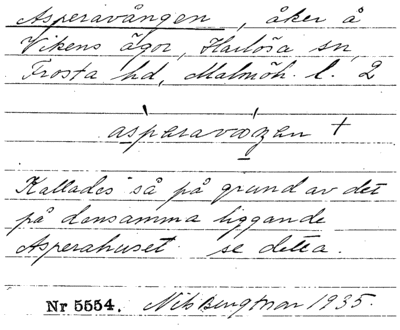 Asperavången, åker å
Vikens ägor, Harlösa sn,
Frosta hd, Malmöh. l. 2
asperavaŋen +
Kallades så på grund av det
på densamma liggande
Asperahuset se detta.
Nr 5554. Nils Bengtsson 1935.